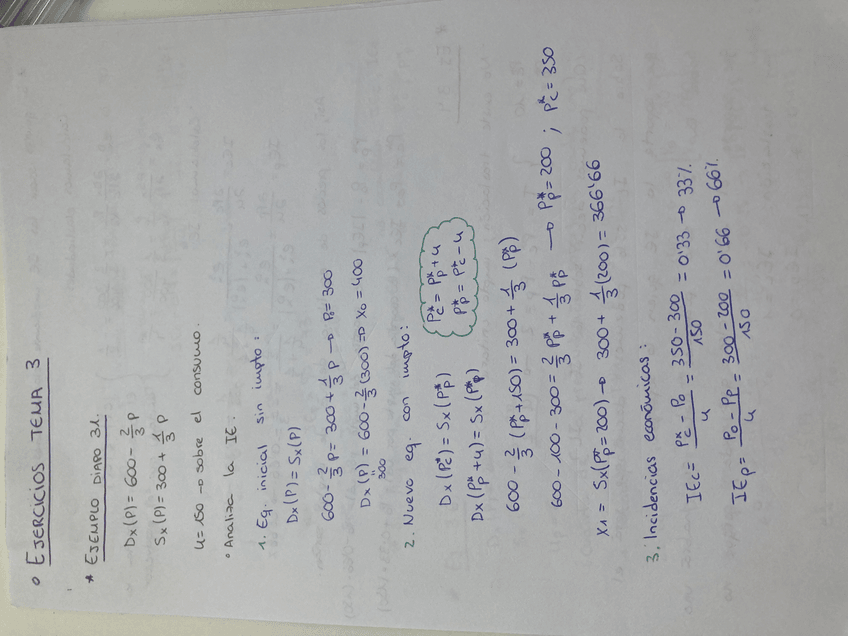 ° EJERCICIOS TEMA 3
* EJEMPLO DIAPO 31.
Dx(P) = 600 - 2/3 P
Sx(P) = 300 + 1/3 P
u = 150 → sobre el consumo.
° Analiza la IE.
1. Eq. inicial sin impto:
Dx(P) = Sx(P)
600 - 2/3 P = 300 + 1/3 P → P0 = 300
Dx(P) = 600 - 2/3 (300) => X0 = 400
"
300
2. Nuevo eq. con impto:
Dx(Pc*) = Sx(Pp*)
Pc* = Pp* + u
Dx(Pp* + u) = Sx(Pp*)
Pp* = Pc* - u
600 - 2/3 (Pp* + 150) = 300 + 1/3 (Pp*)
600 - 100 - 300 = 2/3 Pp* + 1/3 Pp* → Pp* = 200 ; Pc* = 350
X1 = Sx(Pp* = 200) → 300 + 1/3 (200) = 366'66
3. Incidencias económicas:
IEc = Pc* - P0 / u = 350 - 300 / 150 = 0'33 → 33%
IEp = P0 - Pp / u = 300 - 200 / 150 = 0'66 → 66%